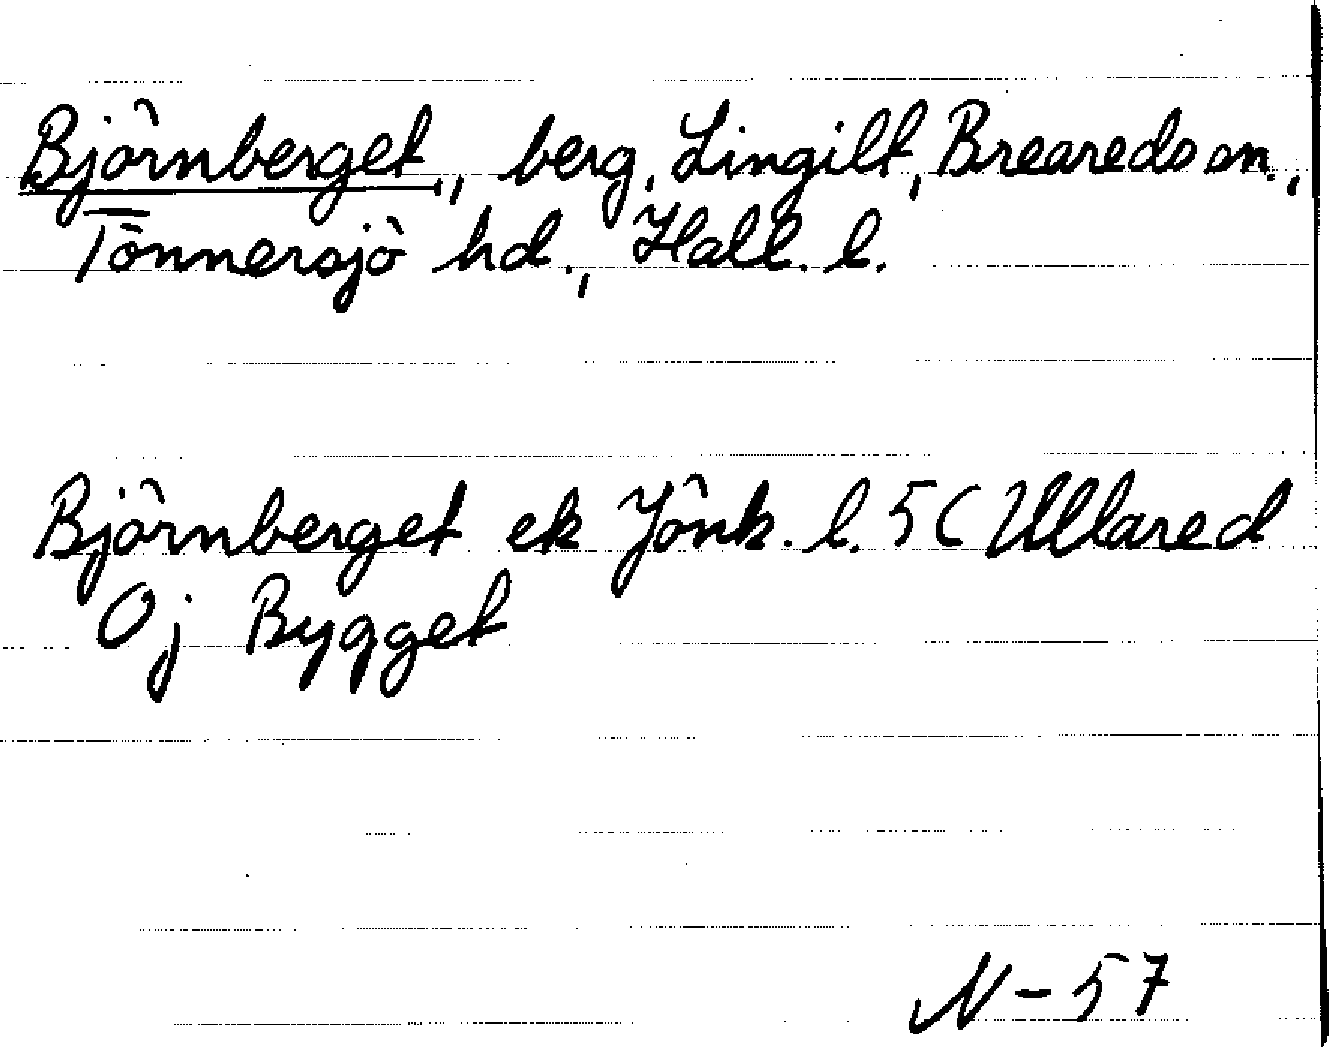 Björnberget, berg, Lingilt, Breareds sn.,
Tönnersjö hd., Hall. l.
Björnberget ek Jönk. l. 5C Ullared
Oj Bygget
N-57